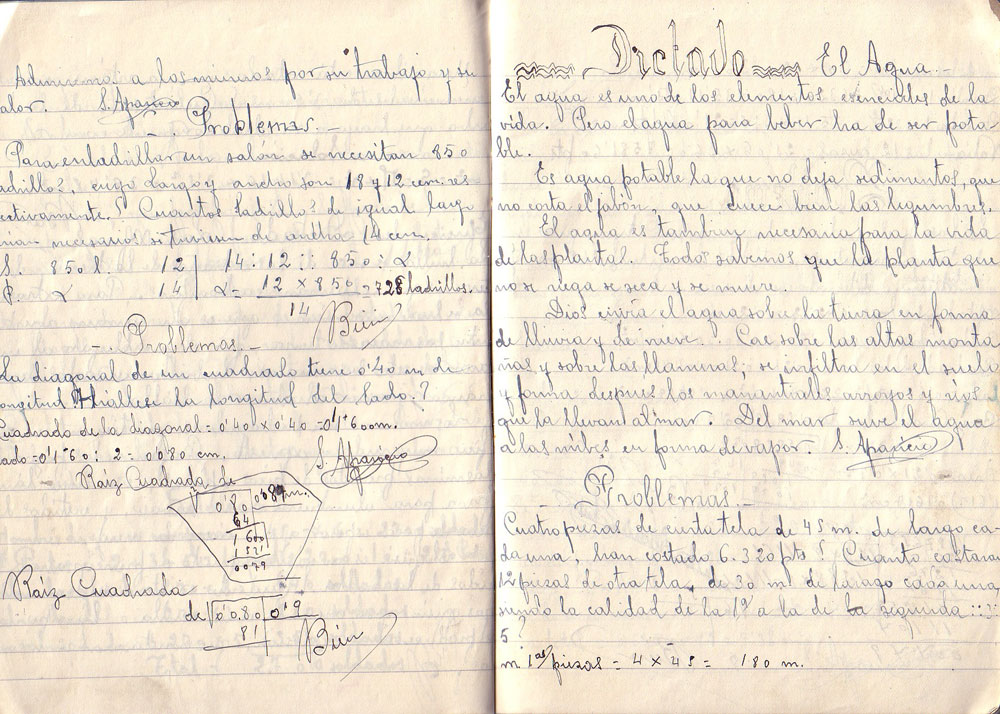 a los mineros por su trabajo y su
alor. S. Aparicio
-. Problemas.-
Para enladrillar un salón se necesitan 850
adrillos, cuyo largo y ancho son 18 y 12 cm. res
ectivamente. ¿ Cuantos ladrillos de igual largo
rian necesarios si tuviesen de ancho 14 cm.
S. 850 l. 12 | 14 : 12 :: 850 : x
P. x 14 | x = 12 x 850 = 728 ladrillos.
14 Bien
-. Problemas.-
La diagonal de un cuadrado tiene 0'40 m de
longitud Hallese la longitud del lado.?
Cuadrado de la diagonal = 0'40 x 0'40 = 0'1600 m.
lado = 0'160 : 2 = 0'080 cm.
S. Aparicio
Raiz Cuadrada de
0'80 0'89 m.
64
1600
1521
0079
Raiz Cuadrada
de 0'0.80 0'9
81
Bien
Dictado El Agua.-
El agua es uno de los elementos esenciales de la
vida. Pero el agua para beber ha de ser pota-
ble.
Es agua potable la que no deja sedimentos, que
no corta el jabón, que cuece bien las legumbres.
El agua es tambien necesaria para la vida
de las plantas. Todos sabemos que la planta que
no se riega se seca y se muere.
Dios envia el agua sobre la tierra en forma
de lluvia y de nieve. Cae sobre las altas monta
ñas y sobre las llanuras; se infiltra en el suelo
y forma despues los manantiales arroyos y rios
que la llevan al mar. Del mar suve el agua
a las núbes en forma de vapor. S. Aparicio
- Problemas -
Cuatro piezas de cierta tela de 45 m. de largo ca-
da una, han costado 6.320 pts ¿ Cuanto costaran
12 piezas de otra tela, de 30 m de largo cada una
siendo la calidad de la 1ª a la de la segunda ::
5 ?
m 1as piezas = 4 x 45 = 180 m.